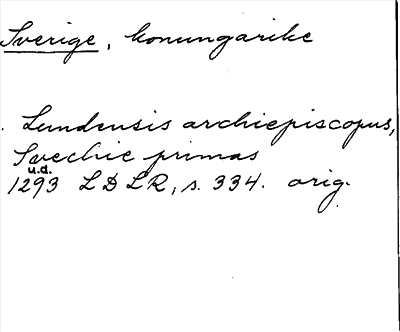 Sverige, konungarike
Lundensis archiepiscopus,
Svechie primas
u.d.
1293 LDLR, s. 334. orig.